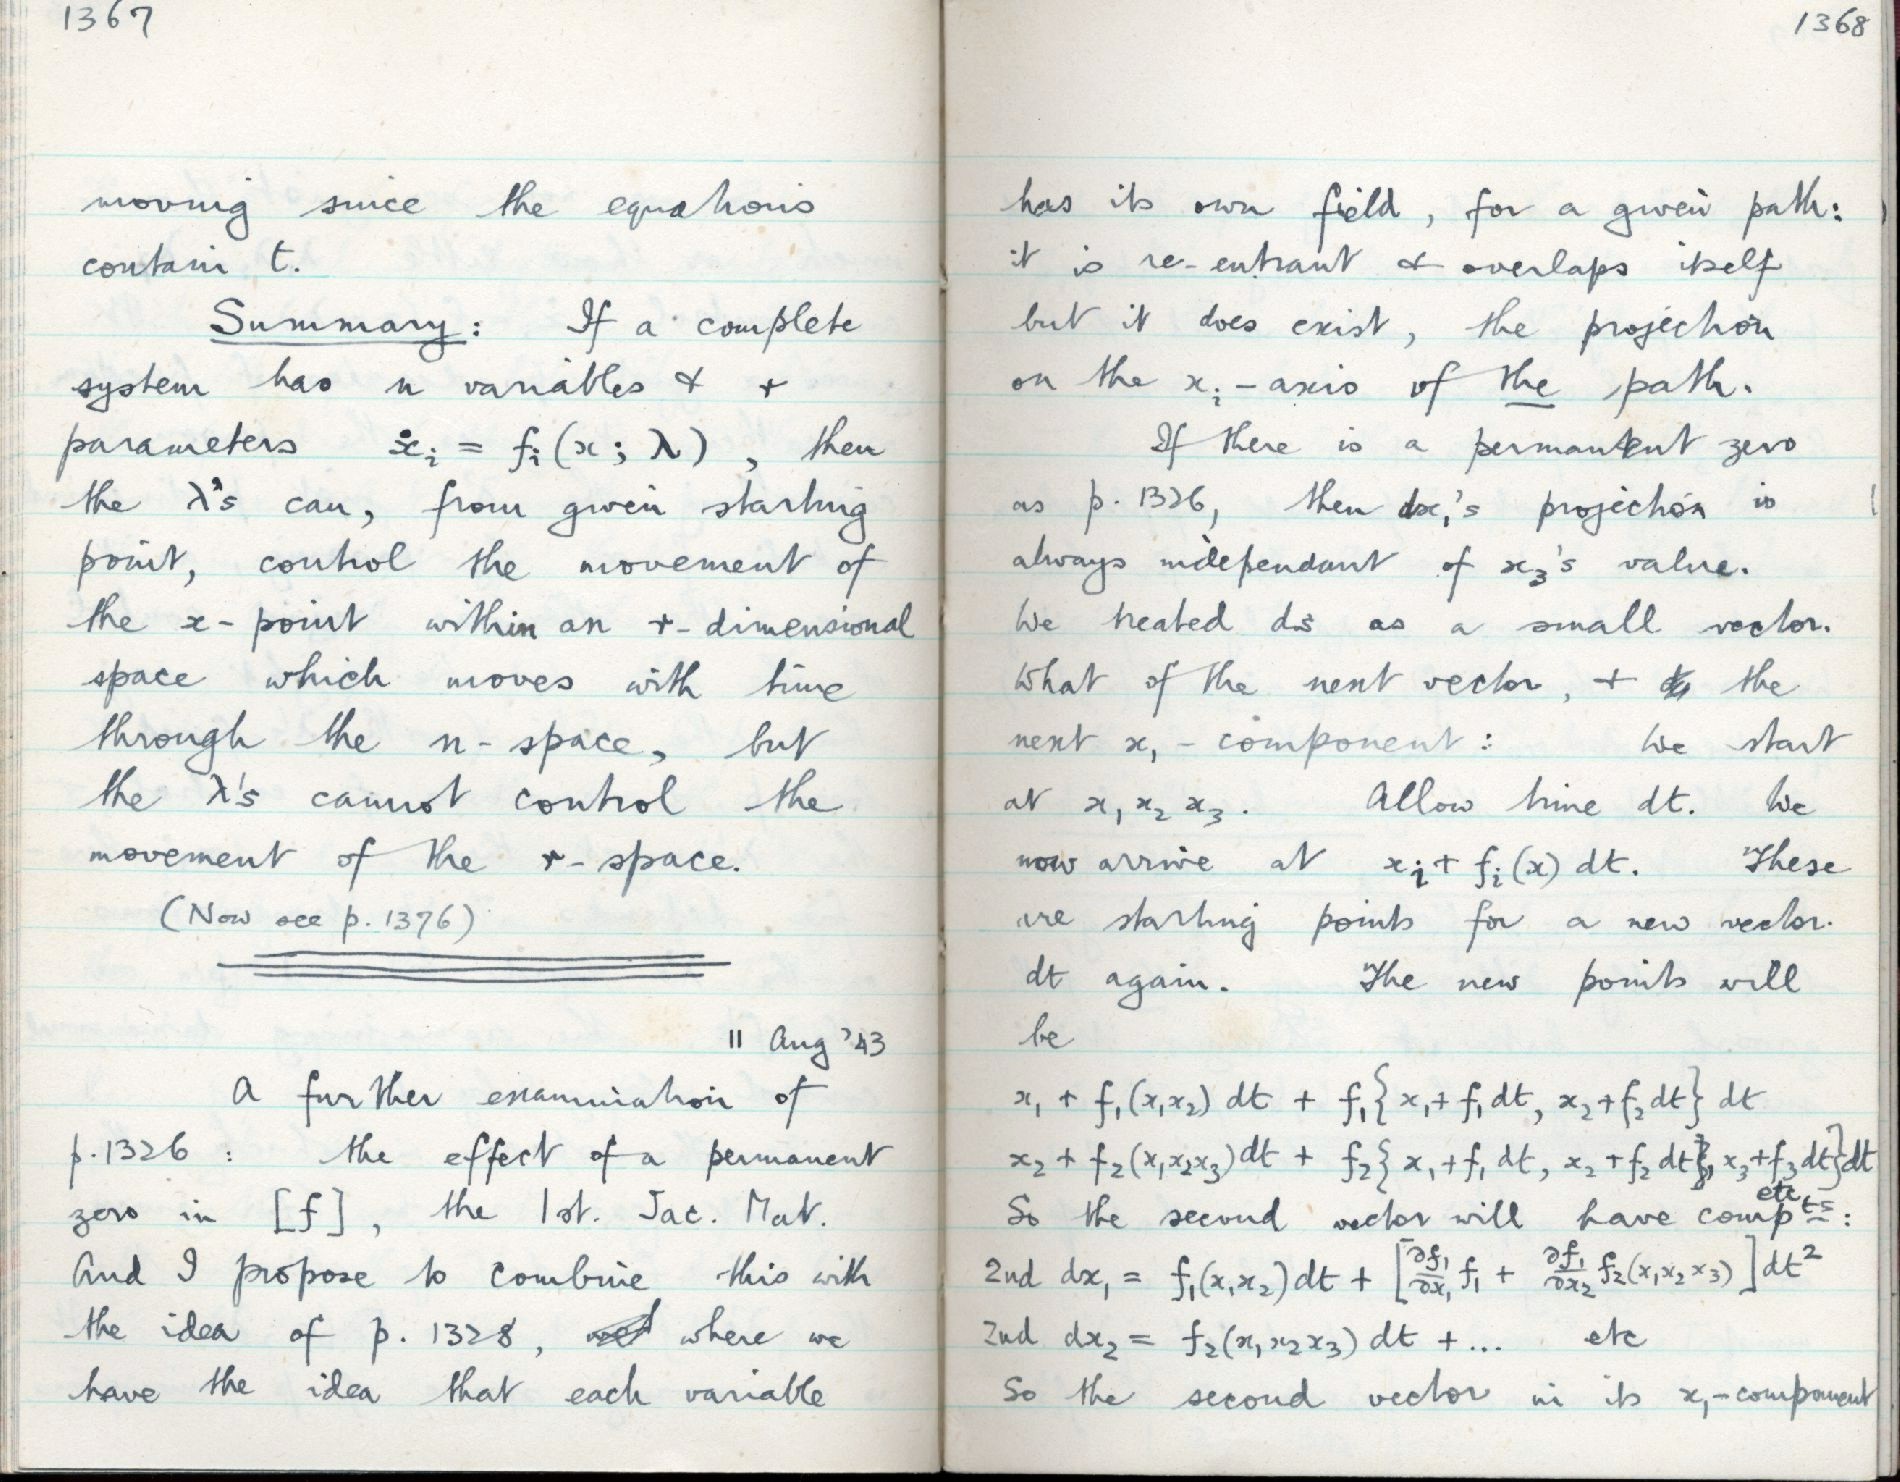 1367
moving since the equations
contain t.
Summary: If a complete
system has n variables & r
parameters ẋᵢ = fᵢ(x; λ), then
the λ's can, from given starting
point, control the movement of
the x-point within an r-dimensional
space which moves with time
through the n-space, but
the λ's cannot control the
movement of the r-space.
(Now see p. 1376)
11 Aug '43
A further examination of
p. 1326 : the effect of a permanent
zero in [f], the 1st. Jac. Mat.
And I propose to combine this with
the idea of p. 1328, where we
have the idea that each variable
1368
has its own field, for a given path:
it is re-entrant & overlaps itself
but it does exist, the projection
on the xᵢ-axis of the path.
If there is a permanent zero
as p. 1326, then dx₁'s projection is
always independant of x₃'s value.
We treated ds as a small vector.
What of the next vector, + the
next x₁-component: We start
at x₁ x₂ x₃. Allow time dt. We
now arrive at xᵢ + fᵢ(x) dt. These
are starting points for a new vector.
dt again. The new points will
be
x₁ + f₁(x₁x₂) dt + f₁{x₁+f₁dt, x₂+f₂dt} dt
x₂ + f₂(x₁x₂x₃) dt + f₂{x₁+f₁dt, x₂+f₂dt, x₃+f₃dt} dt
etc
So the second vector will have compᵗˢ:
2nd dx₁ = f₁(x₁x₂) dt + [∂f₁/∂x₁ f₁ + ∂f₁/∂x₂ f₂(x₁x₂x₃)] dt²
2nd dx₂ = f₂(x₁x₂x₃) dt + ... etc
So the second vector in its x₁-component